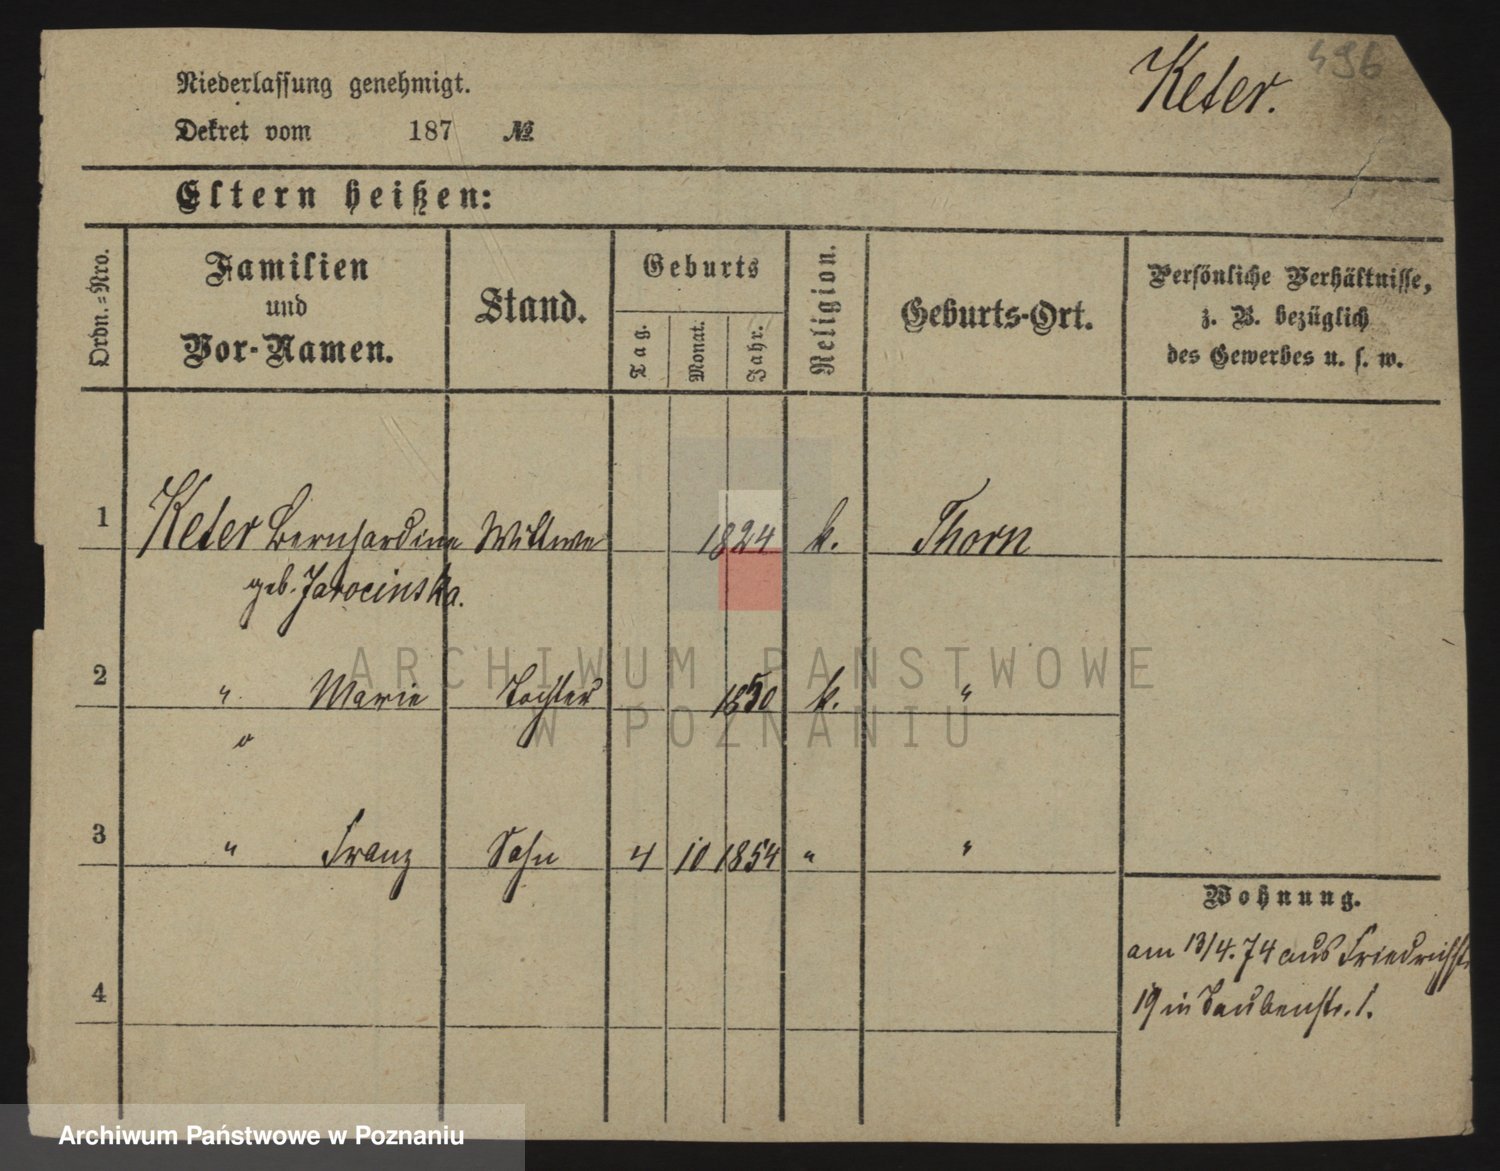 Keter. 496
Niederlassung genehmigt.
Dekret vom 187 №
Eltern heißen:
Ordn.=Nro.
Familien
und
Vor-Namen.
Stand.
Geburts
Tag.
Monat.
Jahr.
Religion.
Geburts-Ort.
Persönliche Verhältnisse,
z. B. bezüglich
des Gewerbes u. s. w.
1 Keter Bernhardine Wittwe 1824 k. Thorn
geb. Jarocinska.
2 " Marie Tochter 1850 k. "
3 " Franz Sohn 4 10 1854 " "
Wohnung.
am 13/4. 74 aus Friedrichstr.
19 in Taubenstr. 1.
4
ARCHIWUM PAŃSTWOWE
W POZNANIU
Archiwum Państwowe w Poznaniu